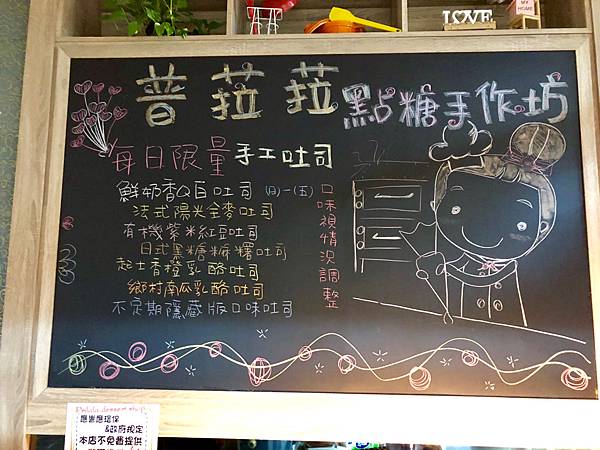 LOVE
MY
HOME
普菈菈 點糖手作坊
每日限量 手工吐司
鮮奶香Q白吐司 (一)-(五)
法式陽光全麥吐司
有機紫米紅豆吐司
日式黑糖麻糬吐司
起士香橙乳酪吐司
鄉村南瓜乳酪吐司
不定期隱藏版口味吐司
口味視情況調整
Palala dessert shop
應響應環保
&政府規定
本店不免費提供